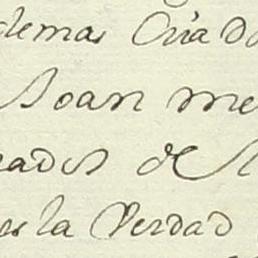 demas Criado
Joan me
eados de
es la Verdad